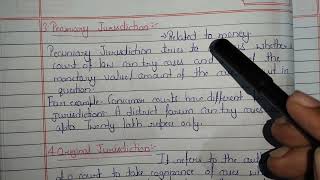 3. Pecuniary Jurisdiction:-
→ Related to money.
Pecuniary Jurisdiction tries to is whether
court of law can try cases and of the
monetary value/amount of the case in
question.
For example- Consumer courts have different
Jurisdictions. A district forum can try cases
upto twenty lakh rupees only.
4. Original Jurisdiction:-
It refers to the
of a court to take cognizance of cases